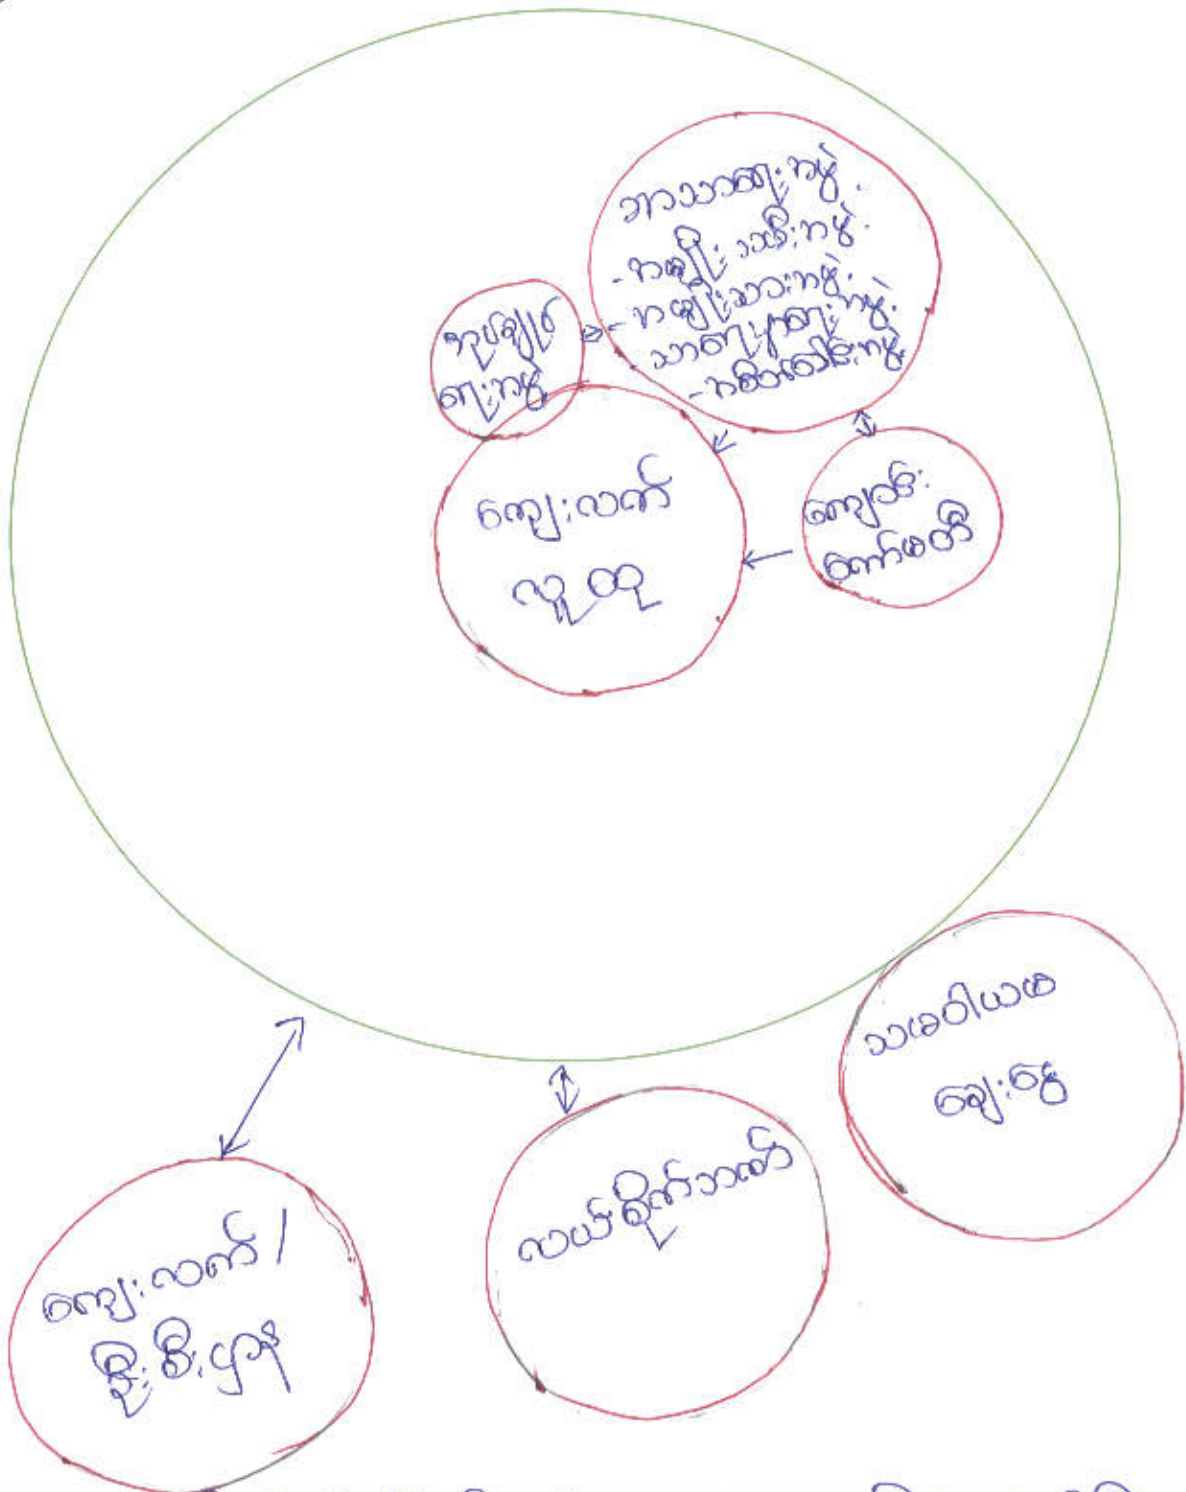 ဘာသာရေးအဖွဲ့.
- အမျိုးသမီးအဖွဲ့.
- အမျိုးသားအဖွဲ့.
- သာရေးနာရေးအဖွဲ့.
အုပ်ချုပ်
ရေးအဖွဲ့
ကျေးလက်
လူထု
ကျောင်း
ကော်မတီ
သမဝါယမ
ချေးငွေ
လယ်စိုက်ဘဏ်
ကျေးလက် /
ဦးစီးဌာန